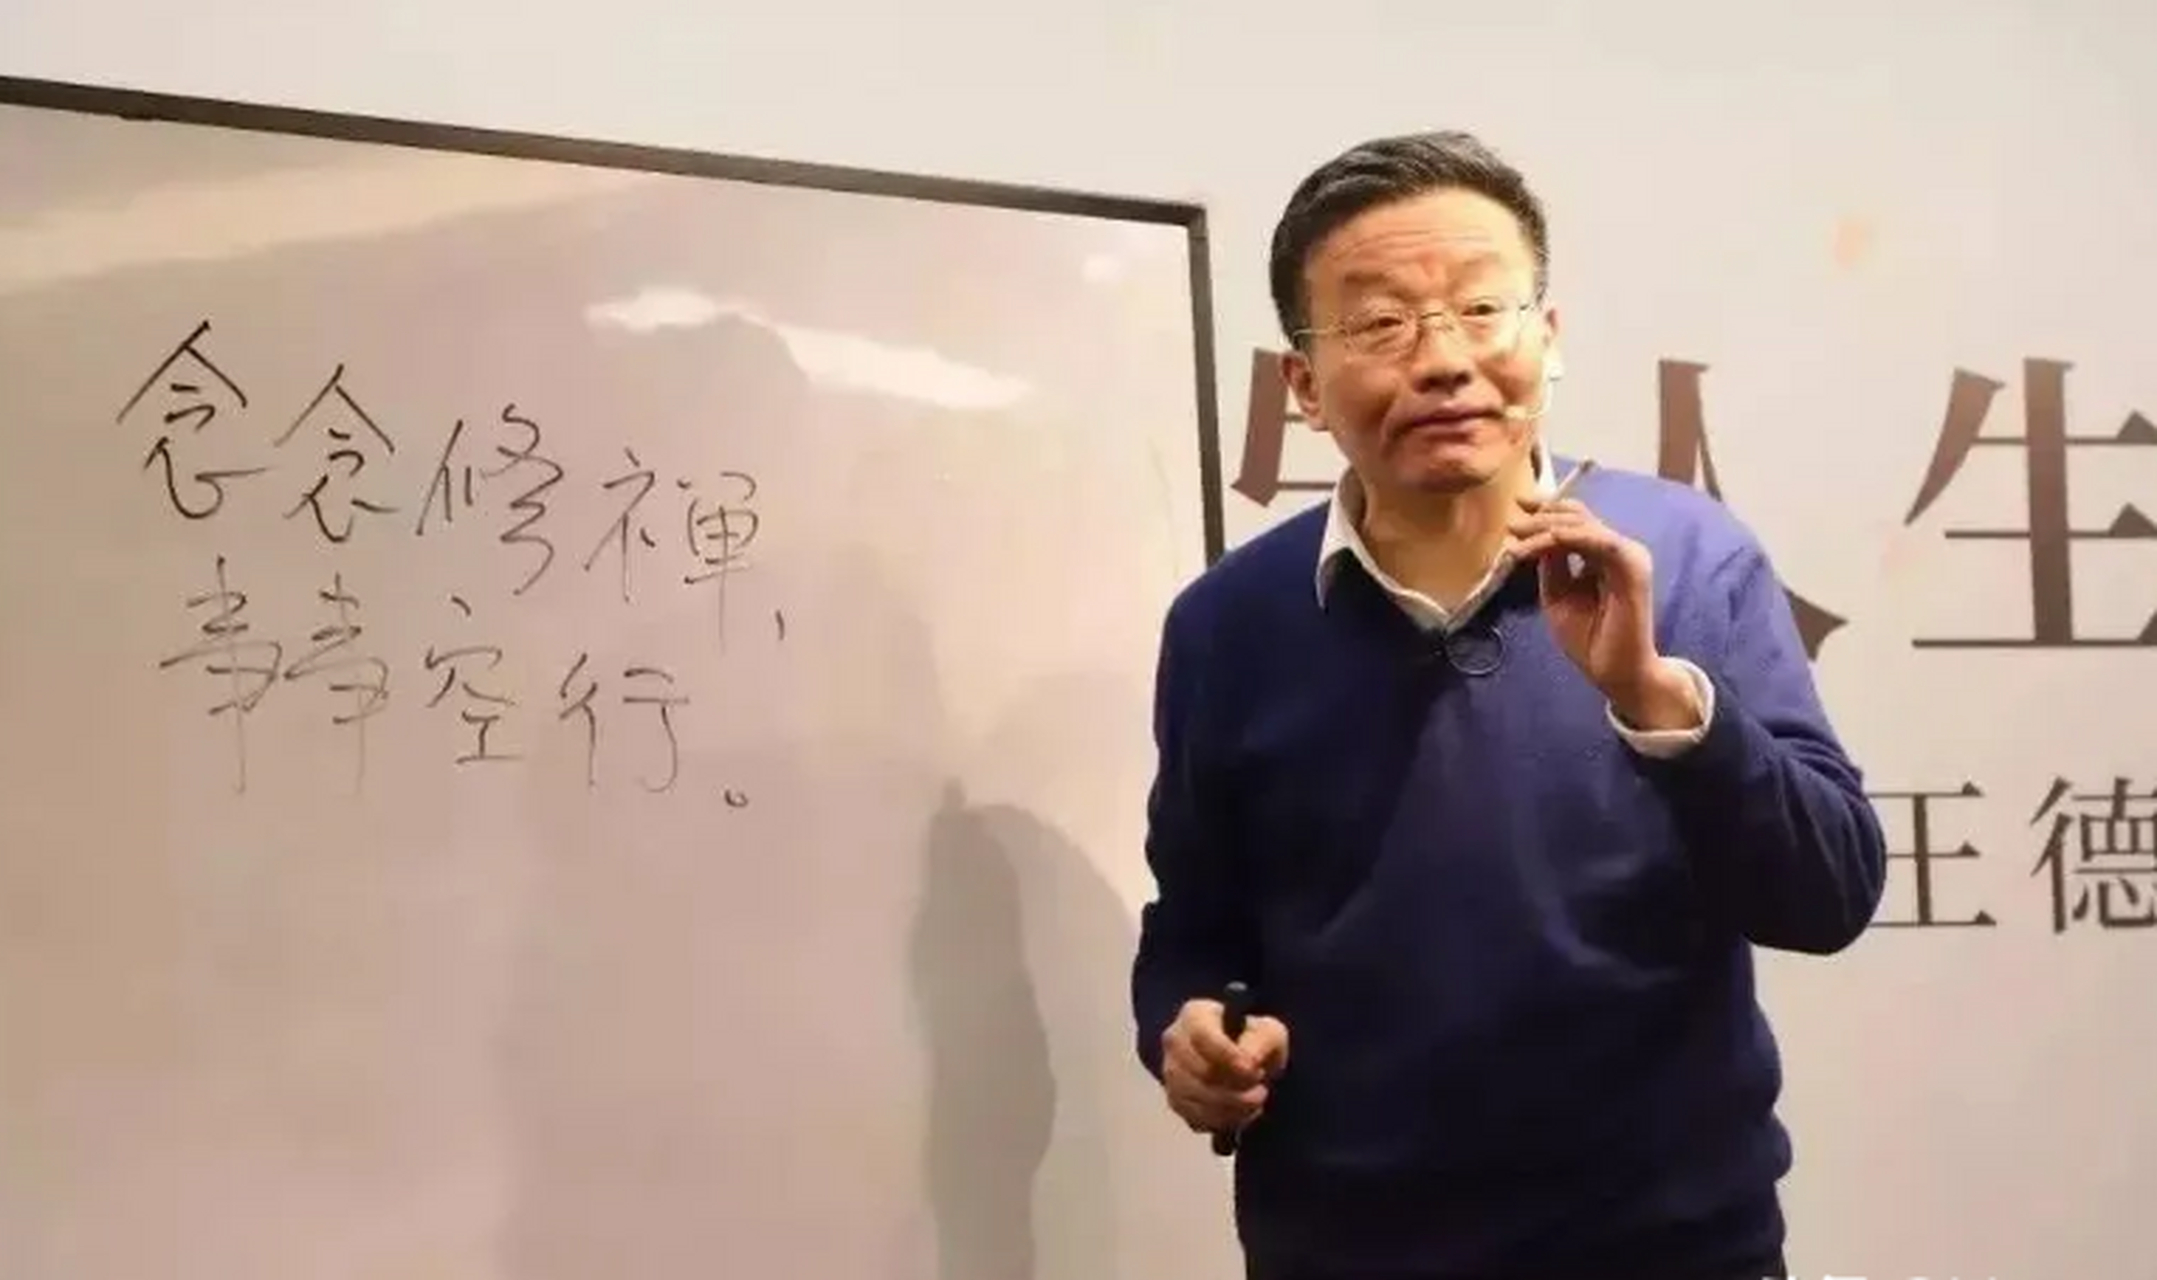 念念修禅,
事事空行。
人生
王德